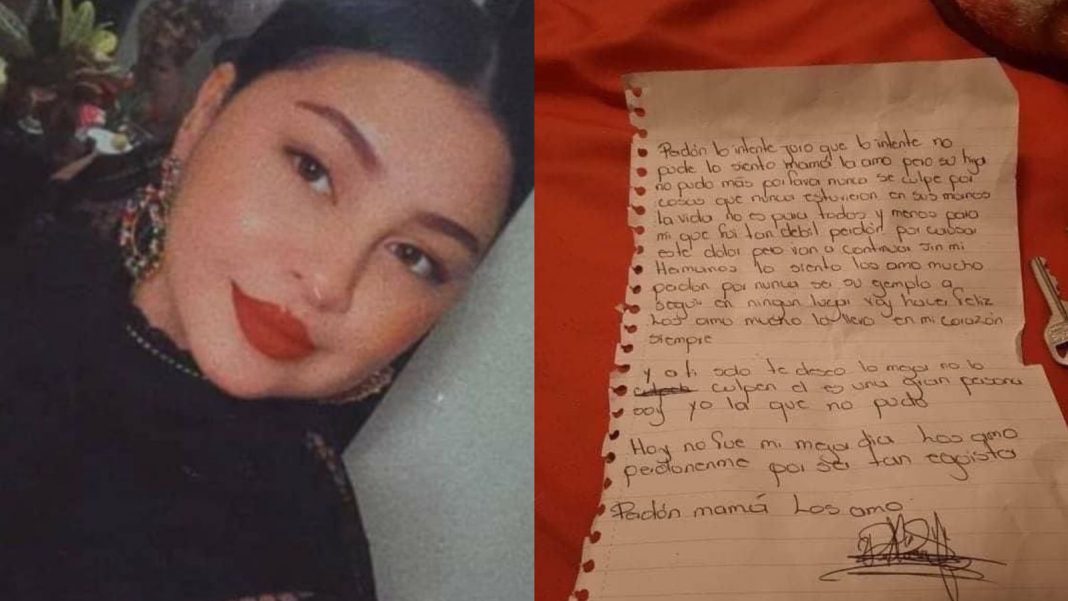 Perdón lo intente juro que lo intente no
pude lo siento mamá la amo pero su hija
no pudo más por favor nunca se culpe por
cosas que nunca estuvieron en sus manos
la vida no es para todos y menos para
mi que fui tan debil perdón por causar
este dolor pero van a continuar sin mi
Hermanos lo siento los amo mucho
perdon por nunca ser su ejemplo a
seguir en ningun lugar voy hacer feliz
Los amo mucho lo llevo en mi corazón
siempre
y a ti solo te deseo lo mejor no lo
culpen el es una gran persona
soy yo la que no pudo
Hoy no fue mi mejor dia Los amo
perdonenme por ser tan egoista
Perdón mamá Los amo